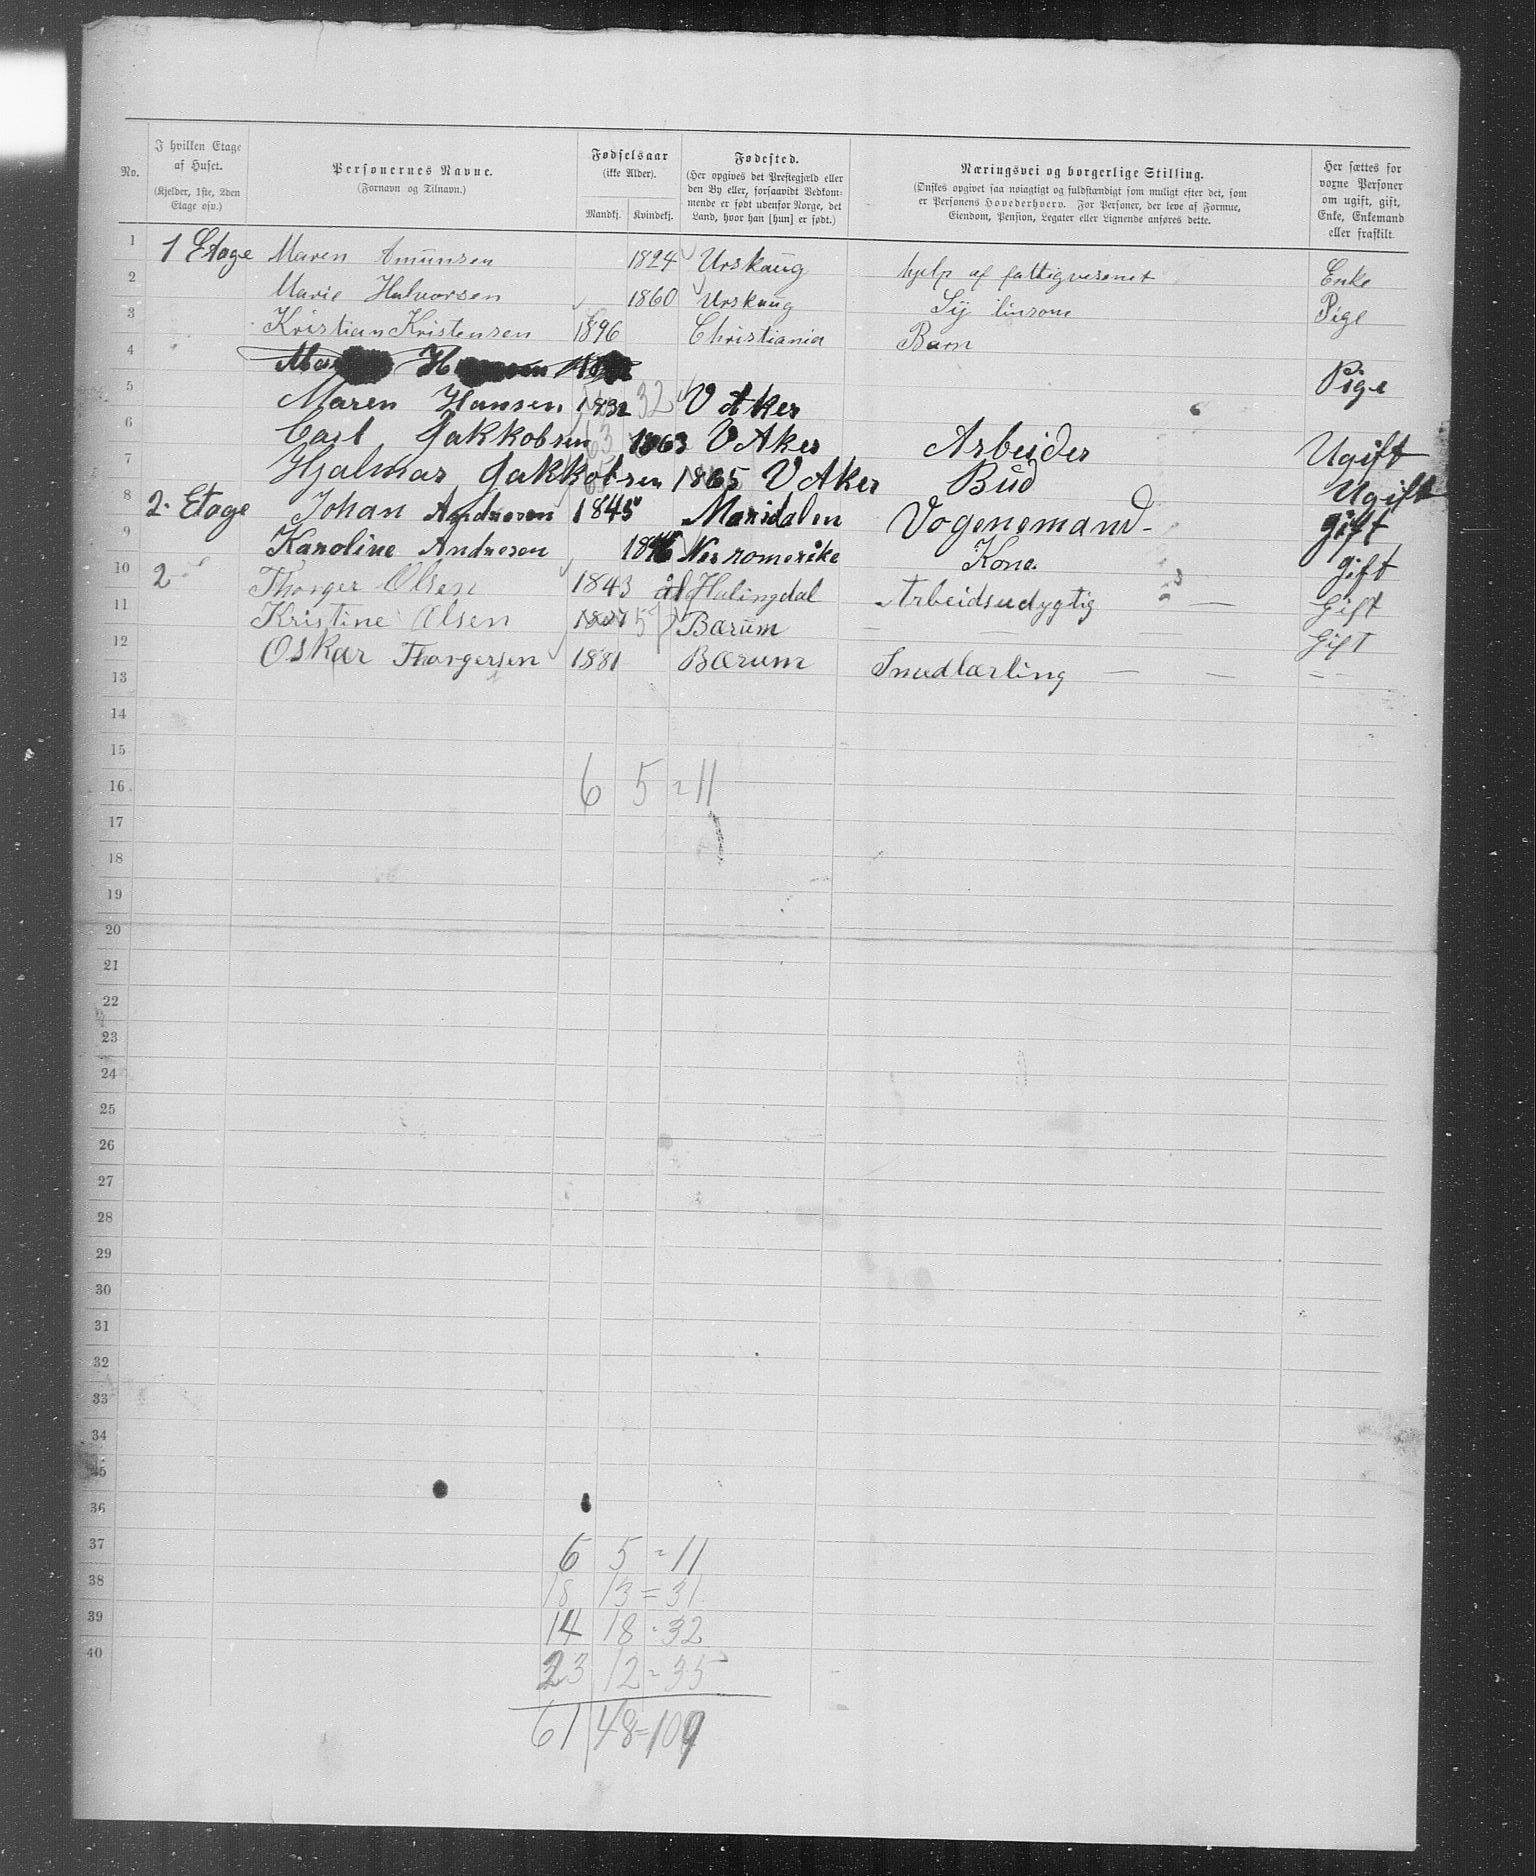 No. | I hvilken Etage af Huset. (Kjelder, 1ste, 2den Etage osv.) | Personernes Navne. (Fornavn og Tilnavn.) | Fødselsaar (ikke Alder). Mandkj. Kvindekj. | Fødested. (Her opgives det Prestegjæld eller den By eller, forsaavidt Vedkommende er født udenfor Norge, det Land, hvor han [hun] er født.) | Næringsvei og borgerlige Stilling. (Ønskes opgivet saa nøiagtigt og fuldstændigt som muligt efter det, som er Personens Hovederhverv. For Personer, der leve af Formue, Eiendom, Pension, Legater eller Lignende anføres dette.) | Her sættes for voxne Personer om ugift, gift, Enke, Enkemand eller fraskilt.
1 1 Etage Maren Amunsen 1824 Urskaug hjelp af fattigvesenet Enke
2 Marie Halvorsen 1860 Urskaug Sy linsom Pige
3 Kristian Kristensen 1896 Christiania Barn
4
5 Maren Hansen 1832 32 V Aker Pige
6 Carl Jakkobsen 63 1863 V Aker Arbeider Ugift
7 Hjalmar Jakkobsen 1865 V Aker Bud Ugift
8 2. Etage Johan Andresen 1845 Maridalen Vognemand gift
9 Karoline Andresen 1846 Nes romerike Kone gift
10 2 Thorger Olsen 1843 ål Halingdal Arbeidsudygtig — Gift
11 Kristine Olsen 5 Bærum — — Gift
12 Oskar Thorgersen 1881 Bærum Smedlærling — — —
13
14
15
16 6 5 = 11
17
18
19
20
21
22
23
24
25
26
27
28
29
30
31
32
33
34
35
36
37 6 5 = 11
38 18 13 = 31
39 14 18 = 32
40 23 12 = 35
61 48 = 109